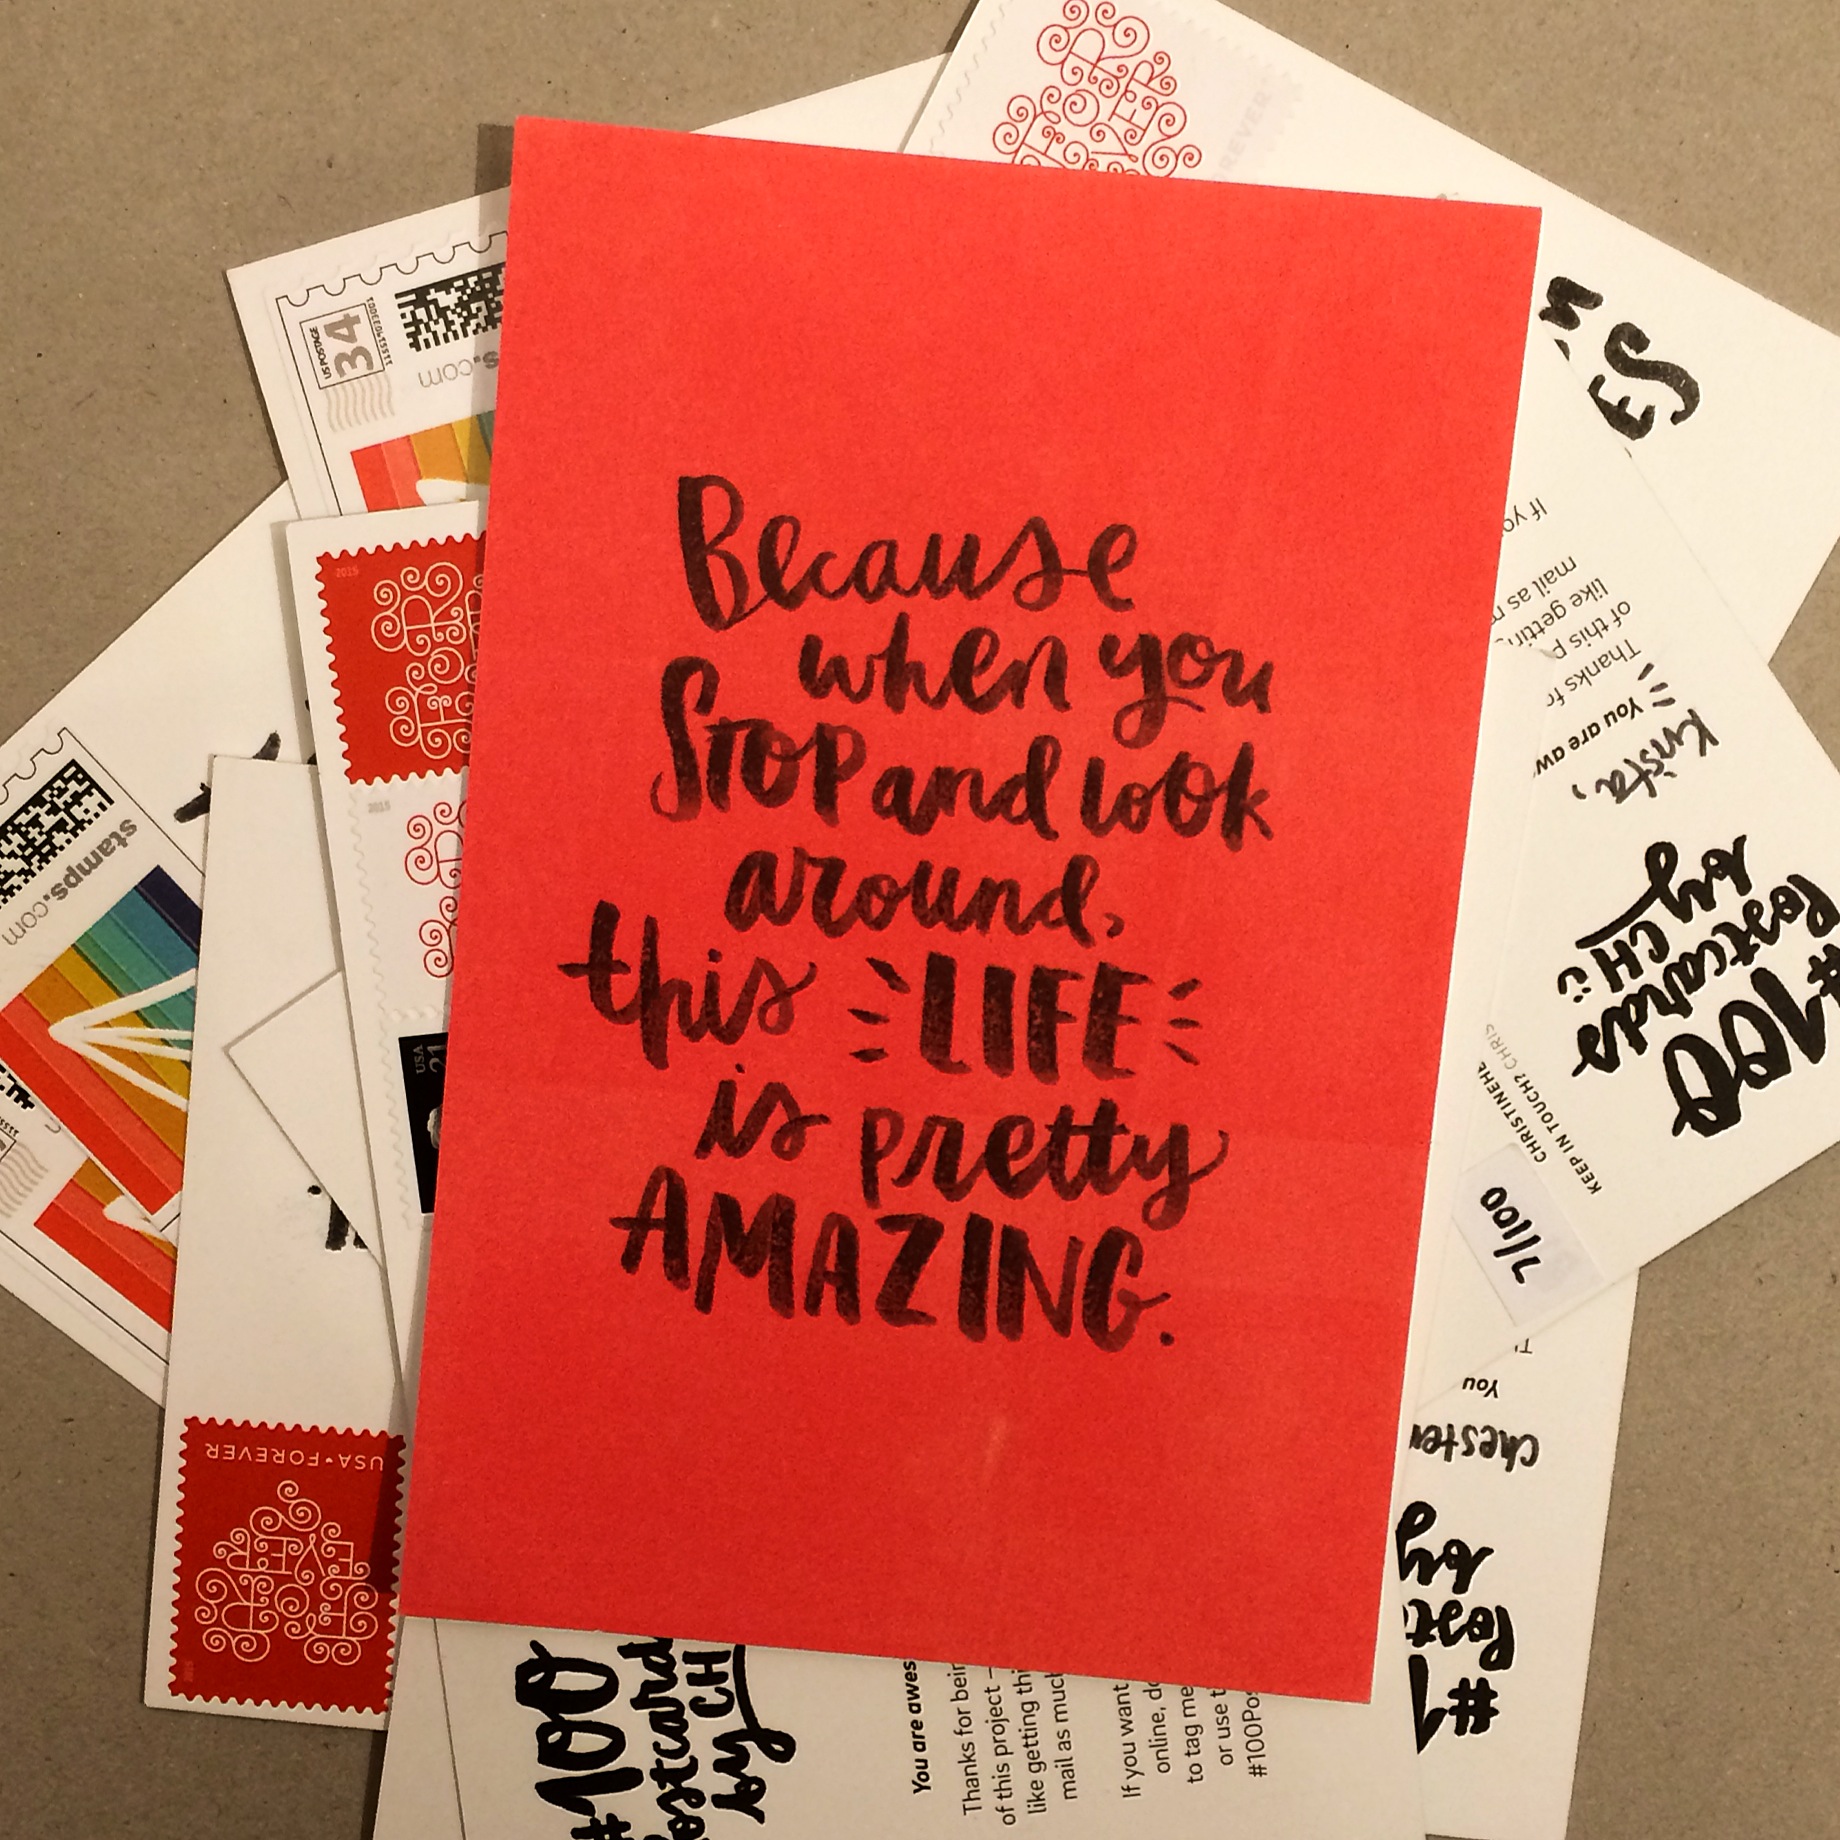 Because
when you
STOP and look
around,
this LIFE
is pretty
AMAZING.
FOREVER
US POSTAGE
34
s.com
2015
2015
stamps.com
USA
21
USA • FOREVER
FOREVER
If yo
mail as m
like gettin
of this p
Thanks fo
You are aw
Krista,
#100
Postcards
by CH
CHRISTINEHE
KEEP IN TOUCH? CHRIS
7/100
You
Chester
by
Post
#1
#100
ostcard
by CH
You are awes
Thanks for bein
of this project –
like getting thi
mail as much
If you want
online, do
to tag me
or use t
#100Pos